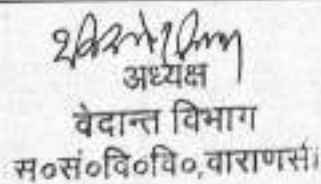 अध्यक्ष
वेदान्त विभाग
स०सं०वि०वि०,वाराणसी